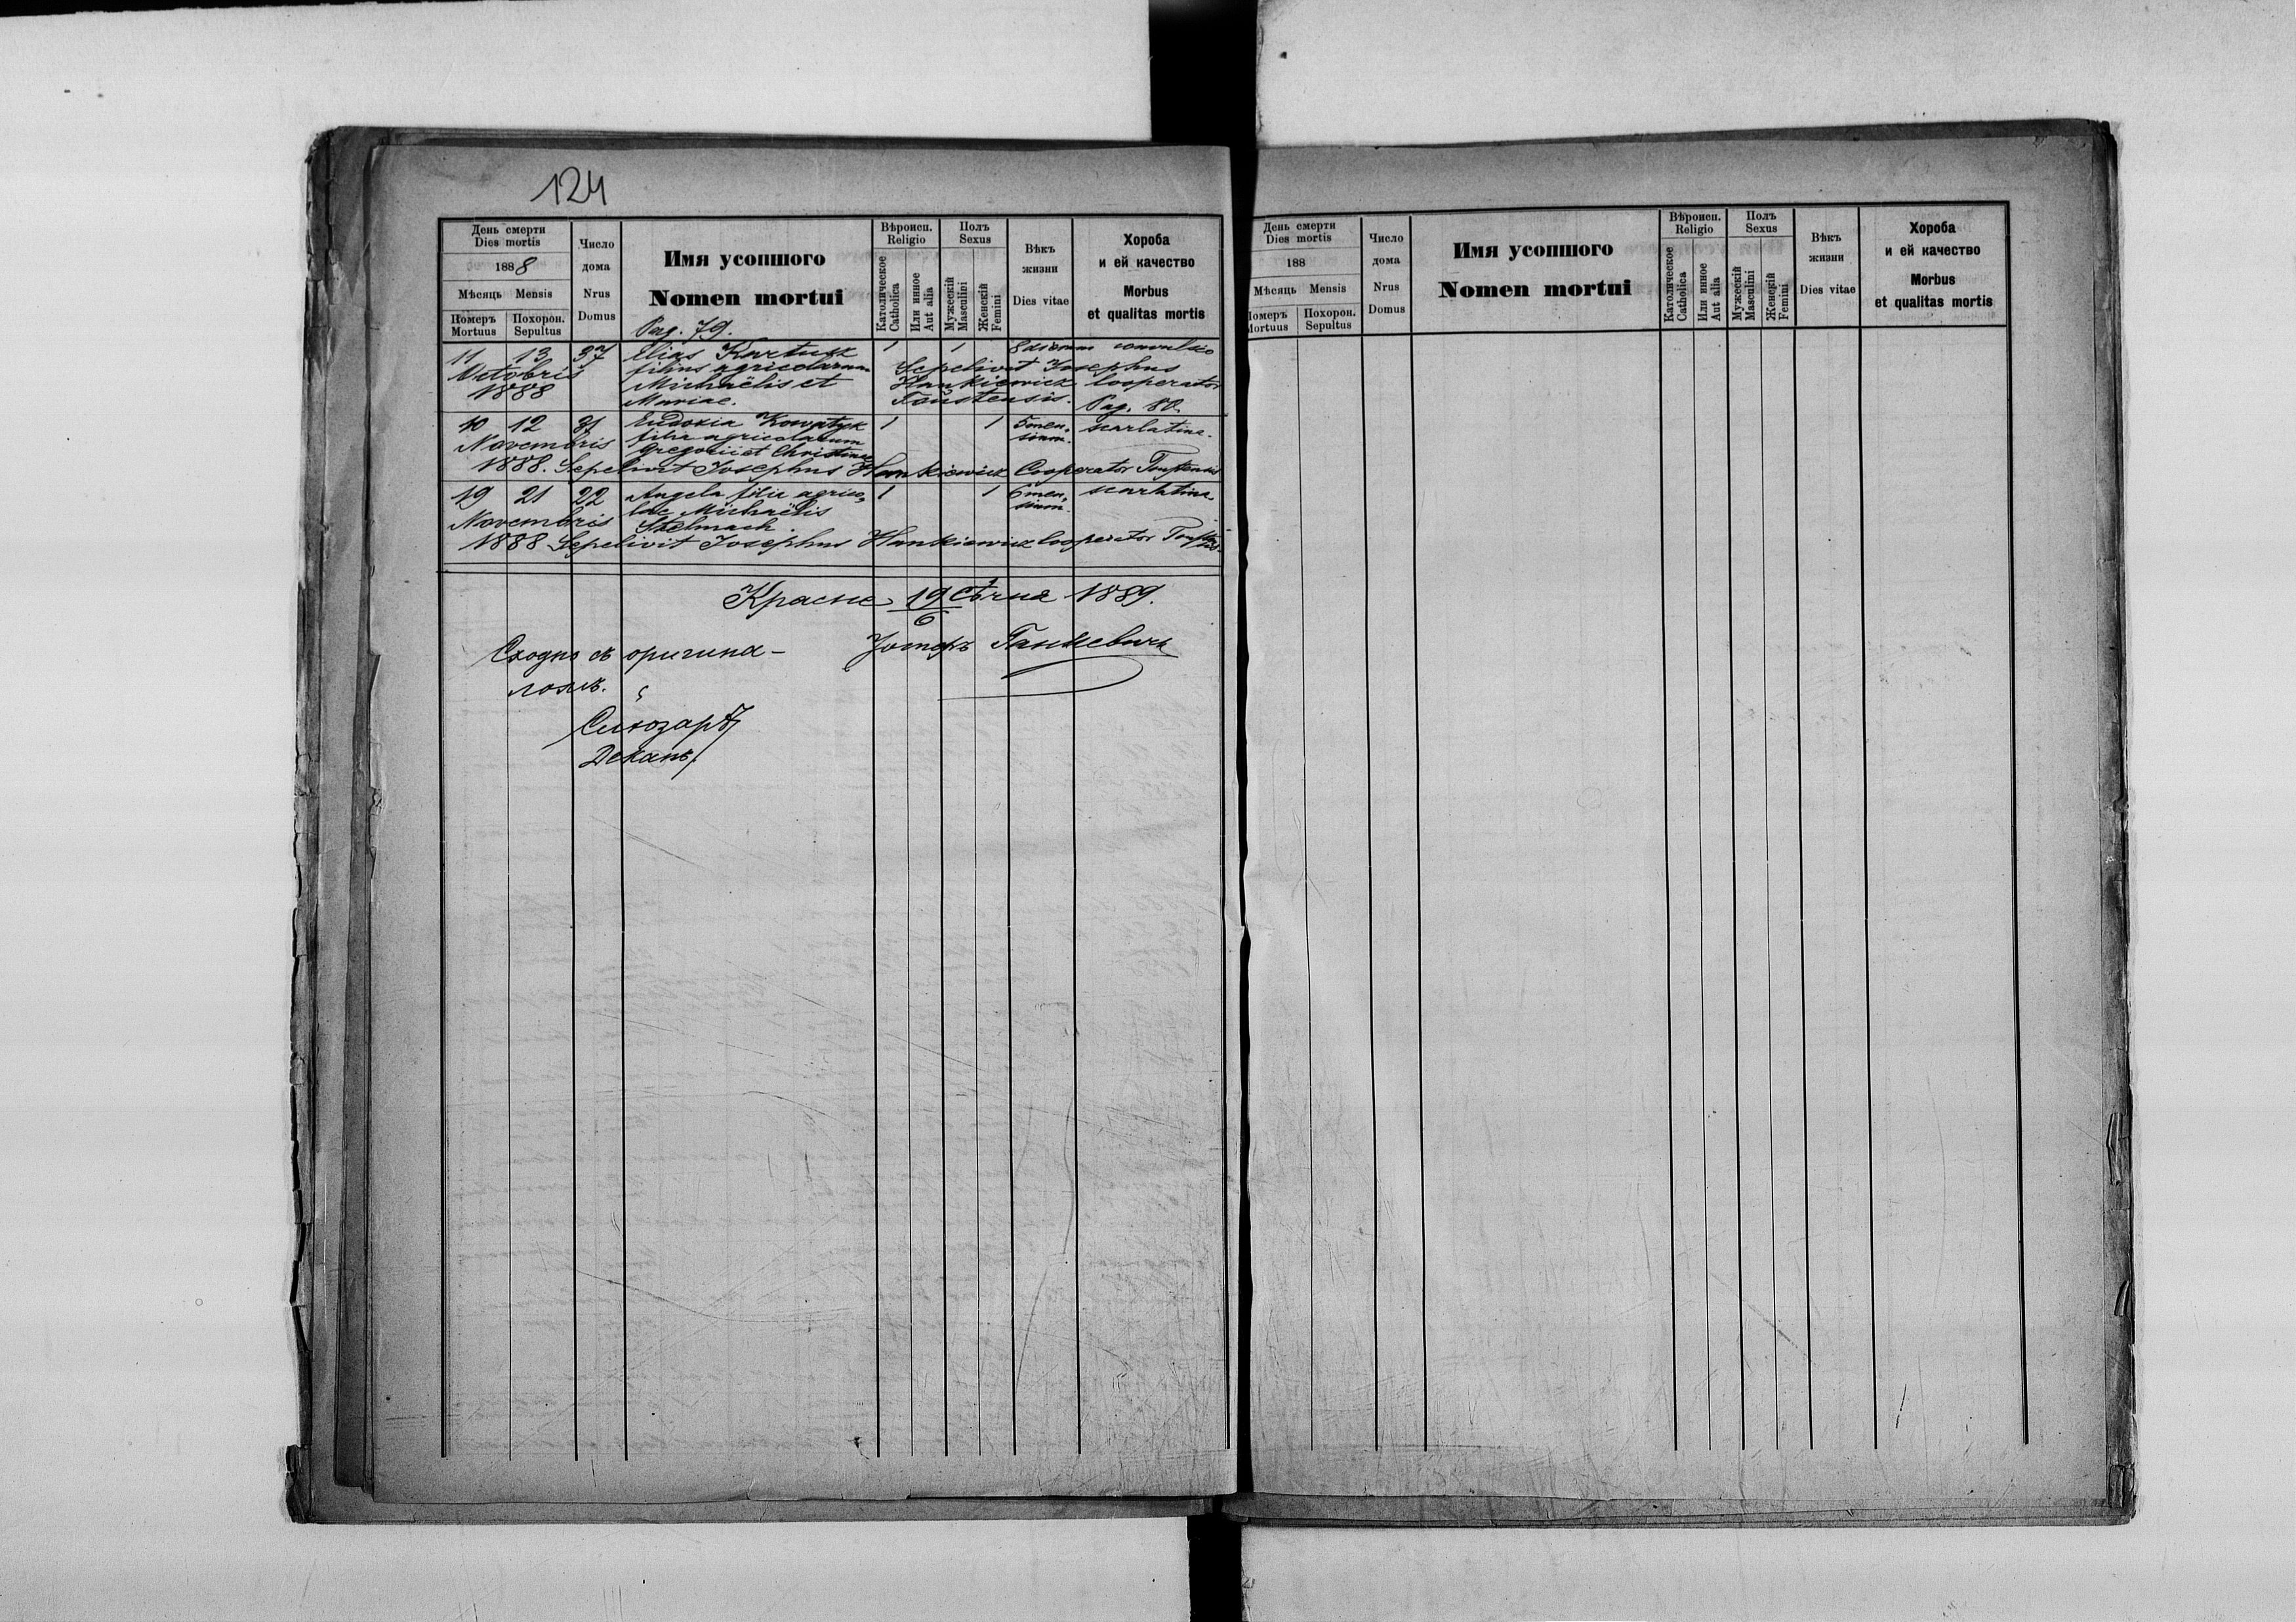 124
День смерти
Dies mortis
1888
Мѣсяць Mensis
Померъ Mortuus
Похорон. Sepultus
Число дома
Nrus Domus
Имя усопшого
Nomen mortui
Вѣроисп.
Religio
Католическое Catholica
Или инное Aut alia
Полъ
Sexus
Мужескій Masculini
Женскій Femini
Вѣкъ жизни
Dies vitae
Хороба
и ей качество
Morbus
et qualitas mortis
Pag. 79.
11 13 37 Elias 1 1 8 dierum convulsio
Octobris filius agricolarum Sepelivit Josephus
1888 Michaëlis et Hankiewicz Cooperator
Mariae. Toustensis. Pag. 80.
10 12 31 Eudoxia 1 1 5 men- scarlatina.
Novembris filia agricolarum sium.
Gregorii et Christinae
1888. Sepelivit Josephus Hankiewicz Cooperator Toustensis
19 21 22 Angela filia agrico- 1 1 6 men- scarlatina.
Novembris lae Michaëlis sium.
Stelmach.
1888 Sepelivit Josephus Hankiewicz Cooperator
Красне 19/6 Сѣчня 1889.
Сходно съ оригина-
Іосифъ Ганкевичъ
ломъ.
Деканъ.
День смерти
Dies mortis
188
Мѣсяць Mensis
Померъ Mortuus
Похорон. Sepultus
Число дома
Nrus Domus
Имя усопшого
Nomen mortui
Вѣроисп.
Religio
Католическое Catholica
Или инное Aut alia
Полъ
Sexus
Мужескій Masculini
Женскій Femini
Вѣкъ жизни
Dies vitae
Хороба
и ей качество
Morbus
et qualitas mortis